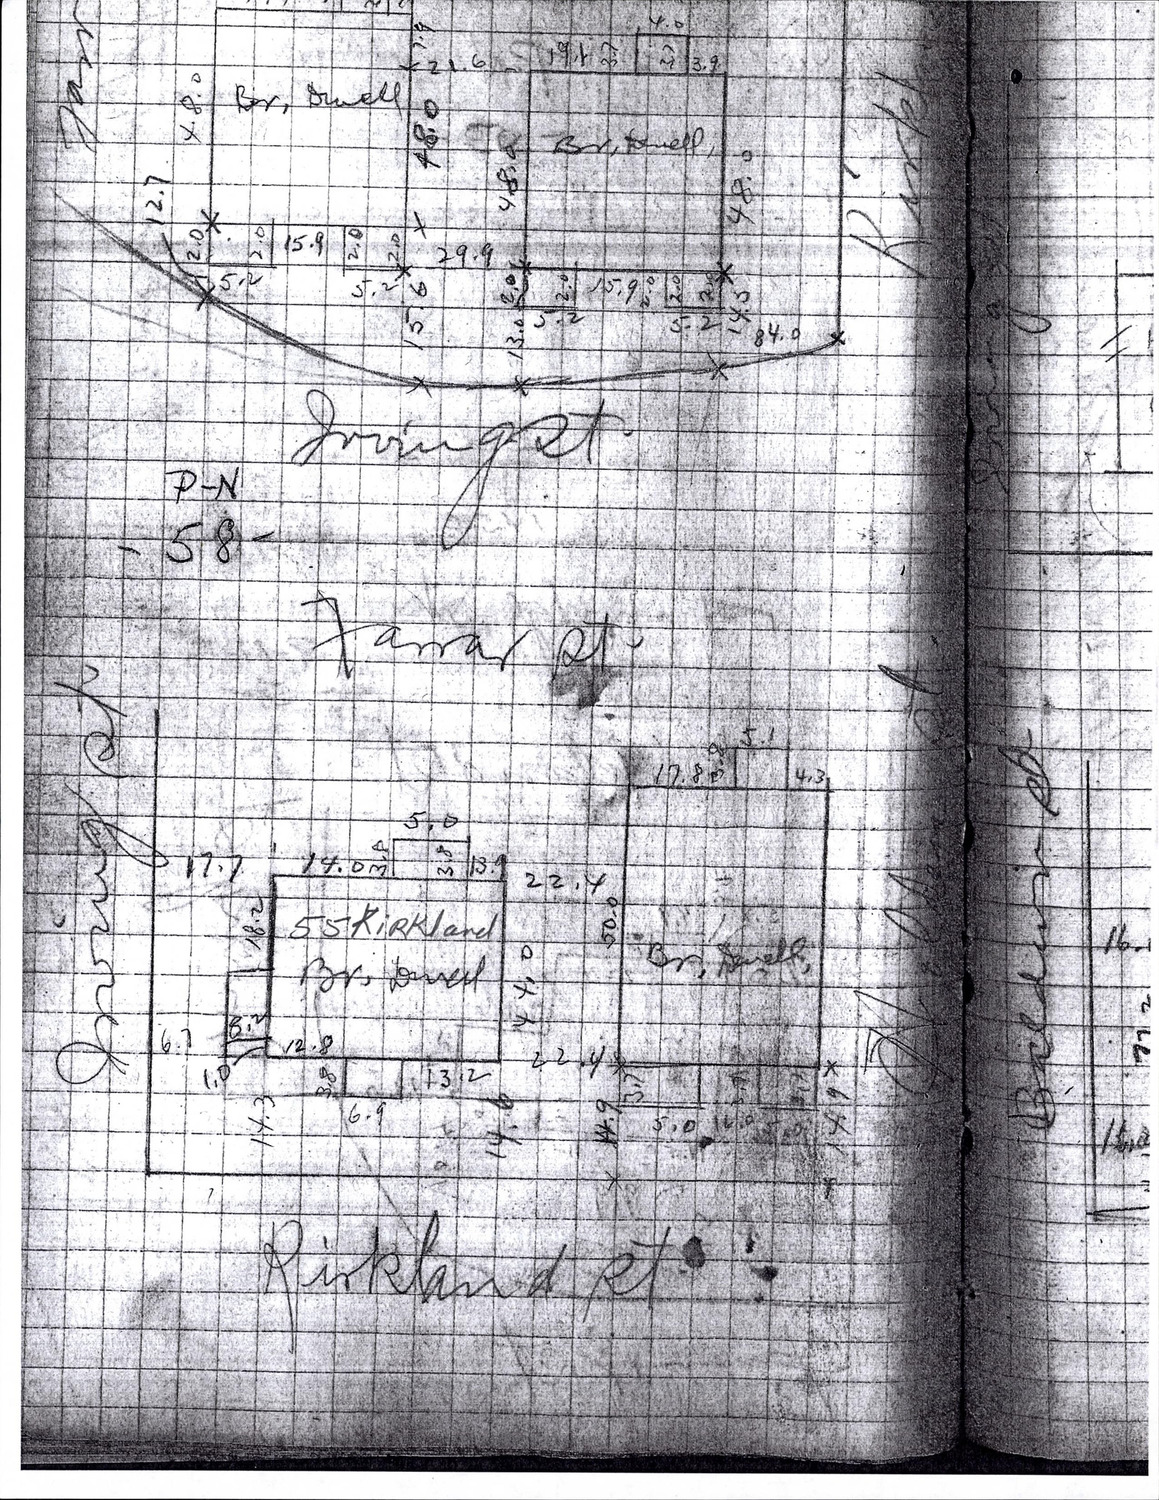 4.0
21.6
19.1
3.7
3.7
3.9
48.0
Br, Dwell
48.0
48.0
Br, Dwell,
48.0
12.7
2.0
2.0
15.9
2.0
2.0
29.9
5.2
5.2
15.6
2.0
2.0
15.9
2.0
2.0
5.2
5.2
14.5
13.0
84.0
Irving St.
P-N
- 58 -
Farrar St.
Irving St.
5.1
17.8
3.8
4.3
5.0
17.7
14.0
3.8
3.8
13.9
22.4
18.2
55 Kirkland
Br, Dwell
44.0
50.0
Br, Dwell,
6.7
8.2
12.8
22.4
1.0
3.8
13.2
3.7
6.9
5.0
14.3
14.6
14.9
14.9
Kirkland St.
Baldwin St
16.
77.2